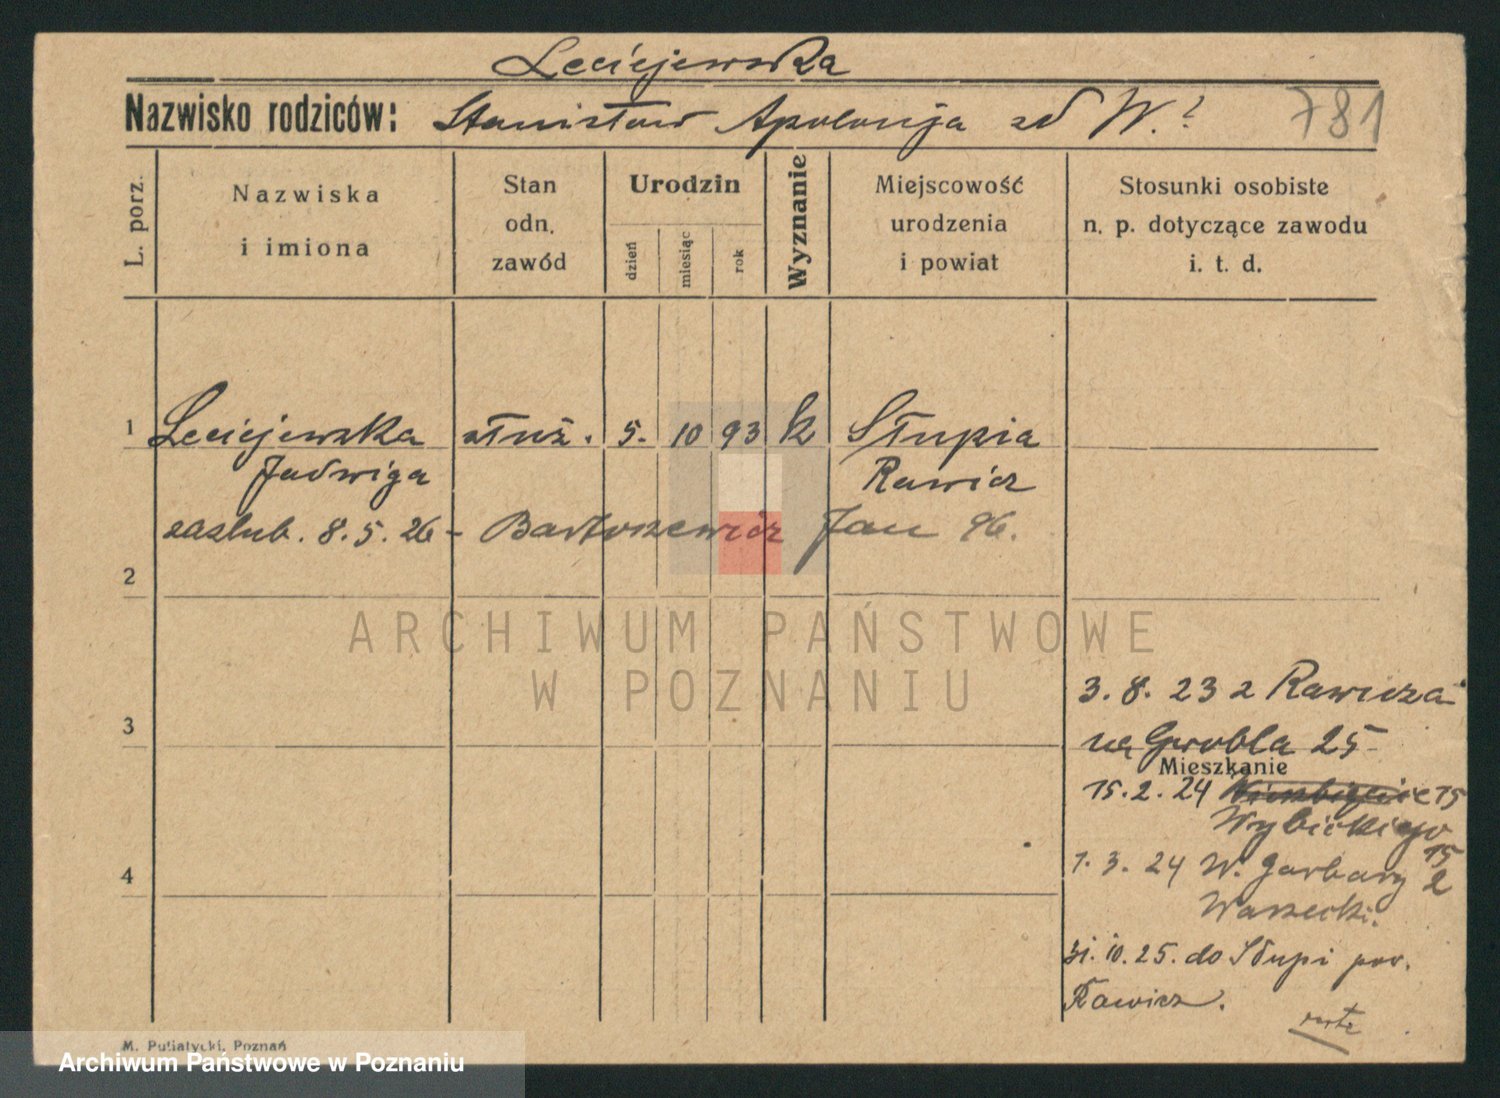 Leciejewska
Nazwisko rodziców: Stanisław Apolonja zd W.? 781
L. porz.
Nazwiska i imiona
Stan odn. zawód
Urodzin
dzień
miesiąc
rok
Wyznanie
Miejscowość urodzenia i powiat
Stosunki osobiste n. p. dotyczące zawodu i. t. d.
1 Leciejewska służ. 5. 10 93 k Słupia
Jadwiga Rawicz
zaślub. 8. 5. 26 - Bartoszewicz Jan 96.
2
ARCHIWUM PAŃSTWOWE
W POZNANIU
3. 8. 23 z Rawicza
3
na Grobla 25
Mieszkanie
15. 2. 24 15
Wybickiego
15
1. 3. 24 W. Garbary 2
4
31. 10. 25. do Słupi pow.
Rawicz.
M. Putiatycki, Poznań
Archiwum Państwowe w Poznaniu